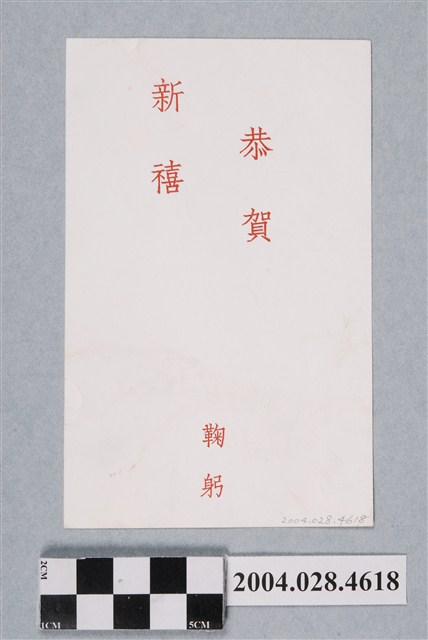 恭賀
新禧
鞠躬
2004.028.4618
2CM
1CM
5CM
2004.028.4618